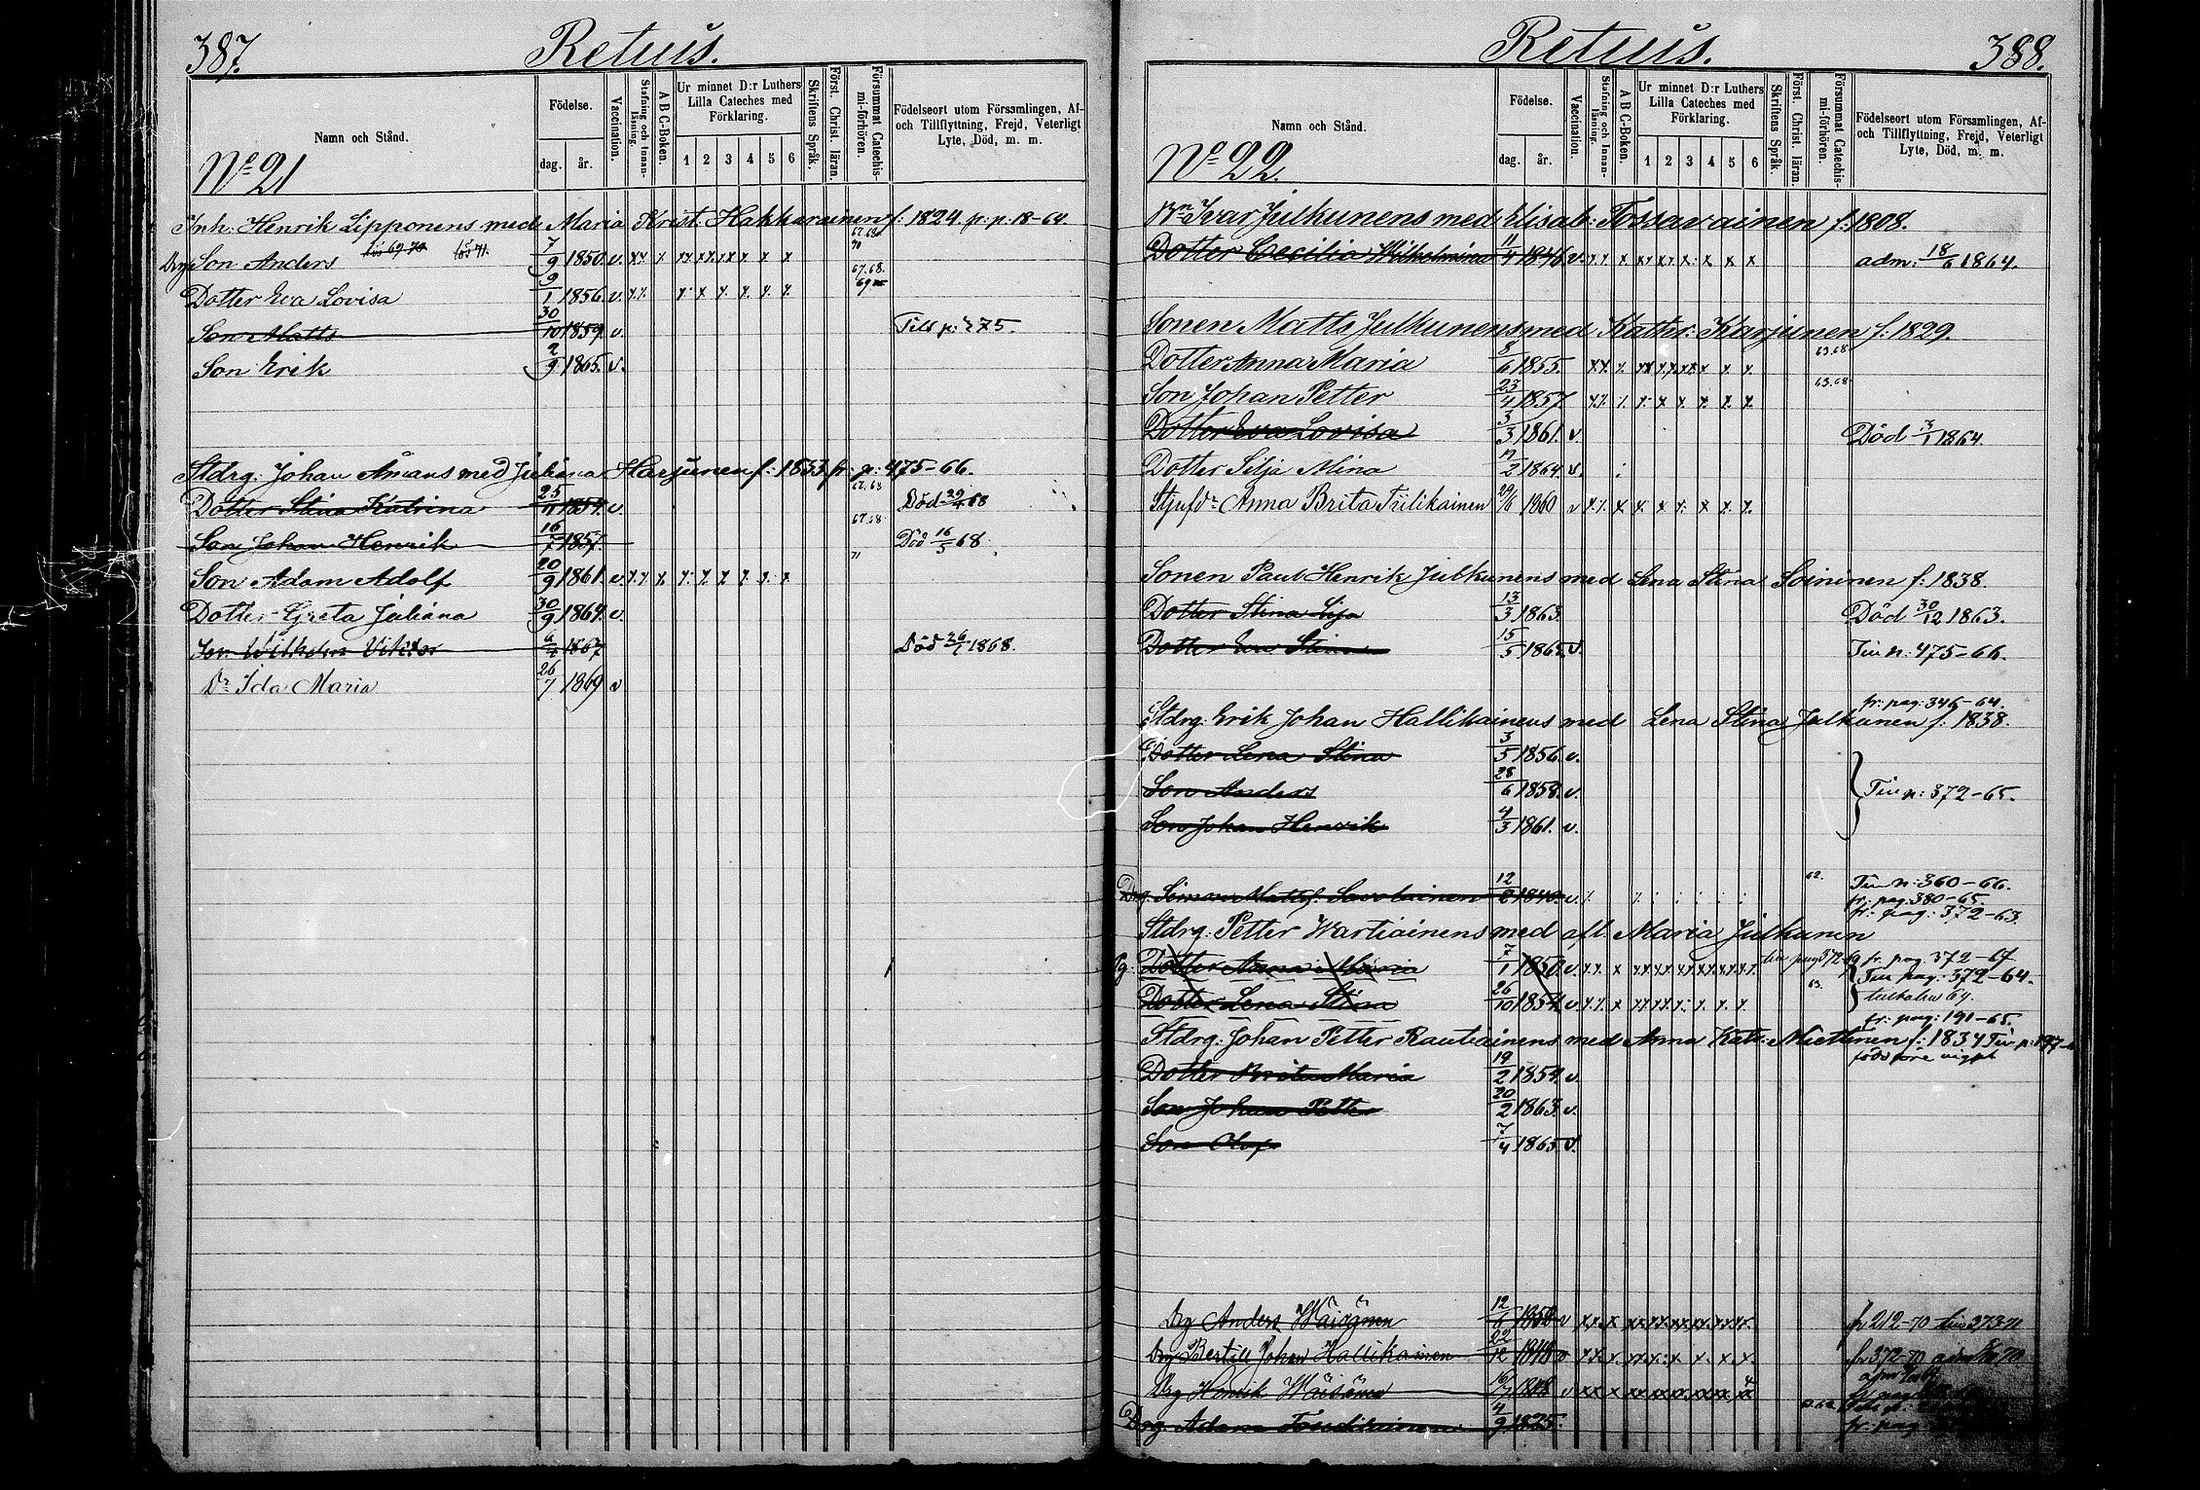 387.
Retuis.
Namn och Stånd.
Födelse.
dag. år.
Vaccination.
Stafning och Innan-läsning.
A B C-Boken.
Ur minnet D:r Luthers Lilla Cateches med Förklaring.
1 2 3 4 5 6
Skriftens Språk.
Först. Christ. läran.
Försummat Catechis-mi-förhören.
Födelseort utom Församlingen, Af- och Tillflyttning, Frejd, Veterligt Lyte, Död, m. m.
No 21
Inh: Henrik Lipponens med Maria Krist. Hakkarainen f: 1824 p: p. 18-64.
Drg Son Anders 7/9 1850. v.
Dotter Eva Lovisa 9/1 1856. v. 67.68.
Son Matts 30/10 1859. v.
Son Erik 2/9 1865. v.
Stdrg: Johan Åmans med Juliana Harjunen f: 1833 fr: p: 475-66.
Dotter Stina Katrina 25/11 1854. v. 67.68
Son Johan Henrik 16/7 1857. 67.68 Död 16/5 68
Son Adam Adolf 20/9 1861. v. 71
Dotter Greta Juliana 30/9 1864. v.
Son Wilhelm Viktor 1867 Död 26/1 1868.
Dr Ida Maria 26/7 1869 v
388.
Retuis.
Namn och Stånd.
Födelse.
dag. år.
Vaccination.
Stafning och Innan-läsning.
A B C-Boken.
Ur minnet D:r Luthers Lilla Cateches med Förklaring.
1 2 3 4 5 6
Skriftens Språk.
Först. Christ. läran.
Försummat Catechis-mi-förhören.
Födelseort utom Församlingen, Af- och Tillflyttning, Frejd, Veterligt Lyte, Död, m. m.
No 22.
Bn Ivar Julkunens med Elisab: Tossavainen f: 1808.
Dotter Cecilia Wilhelmina 11/4 1846. v. adm: 18/6 1864.
Sonen Matts Julkunens med Kathr: Karjunen f: 1829.
Dotter Anna Maria 8/6 1855. 63.68
Son Johan Petter 23/4 1857. 63.68
Dotter Eva Lovisa 3/3 1861. v Död 13/1 1864.
Dotter Silja Mina 17/2 1864. v.
Stjufdr Anna Brita Tiilikainen 29/6 1860 v
Sonen Paul Henrik Julkunens med Lena Stina Soininen f: 1838.
Dotter Stina Lisa 13/3 1863. Död 30/12 1863.
Dotter Eva Stina 15/5 1865. v. 475-66.
fr: pag: 346-64.
Stdrg: Erik Johan Hallikainens med Lena Stina Julkunen f: 1838.
Dotter Lena Stina 3/5 1856. v.
Son Anders 28/6 1858. v. 372-65.
Son Johan Henrik 4/3 1861. v.
Drg. Simon Mattsf. Savolainen 12/2 1840. v. 62. 360-66.
fr: pag: 380-65.
fr: pag: 372-63
Stdrg: Petter Wartiainens med afl. Maria Julkunen
Dotter Anna Maria 7/1 1850. v. fr. pag: 372-67
Dotter Lena Stina 26/10 1854. v. 63. pag: 372-64.
fr: pag: 191-65.
Stdrg: Johan Petter Rautiainens med Anna Kath: Miettinen f: 1834
Dotter Brita Maria 19/2 1854. v. född före vigsel
Son Johan Petter 20/2 1863. v.
Son Olof 7/4 1865. v.
Drg Anders Wäisänen 12/6 1850 v fr 212-70
Drg Bertill Johan Hallikainen 22/12 fr 372-70
Drg Henrik Wäisänen
Drg. Adam 4/9 1825. fr. pag.